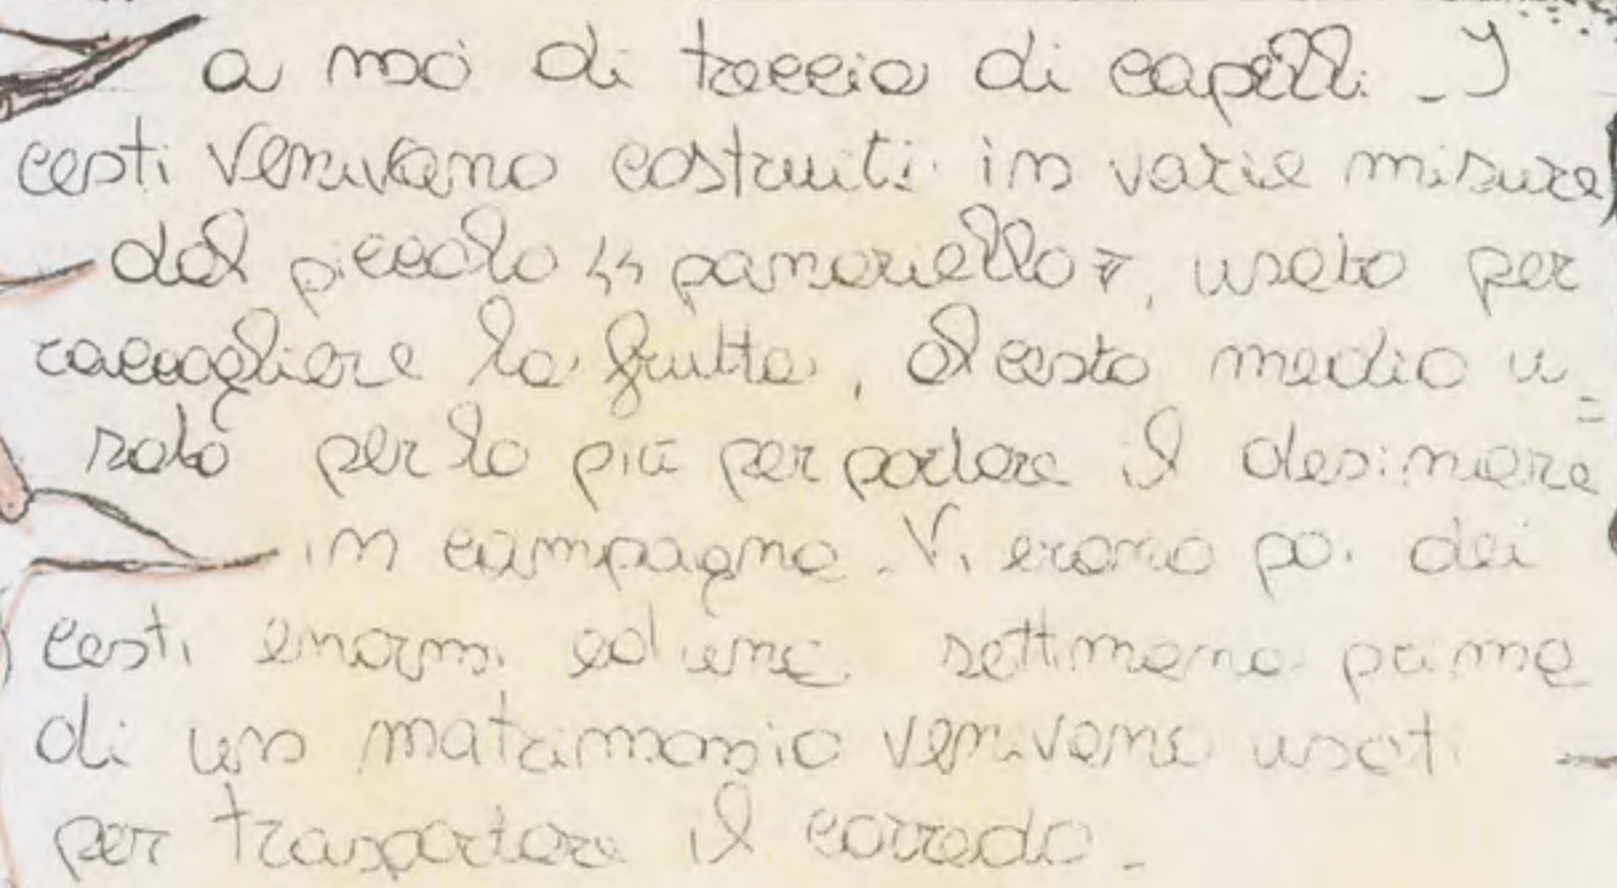 a mò di treccia di capelli. I
cesti venivano costruiti in varie misure
dal piccolo "panariello", usato per
raccogliere la frutta, al cesto medio u=
sato per lo più per portare il desinare
in campagna. Vi erano poi dei
cesti enormi ed una settimana prima
di un matrimonio venivano usati
per trasportare il corredo.